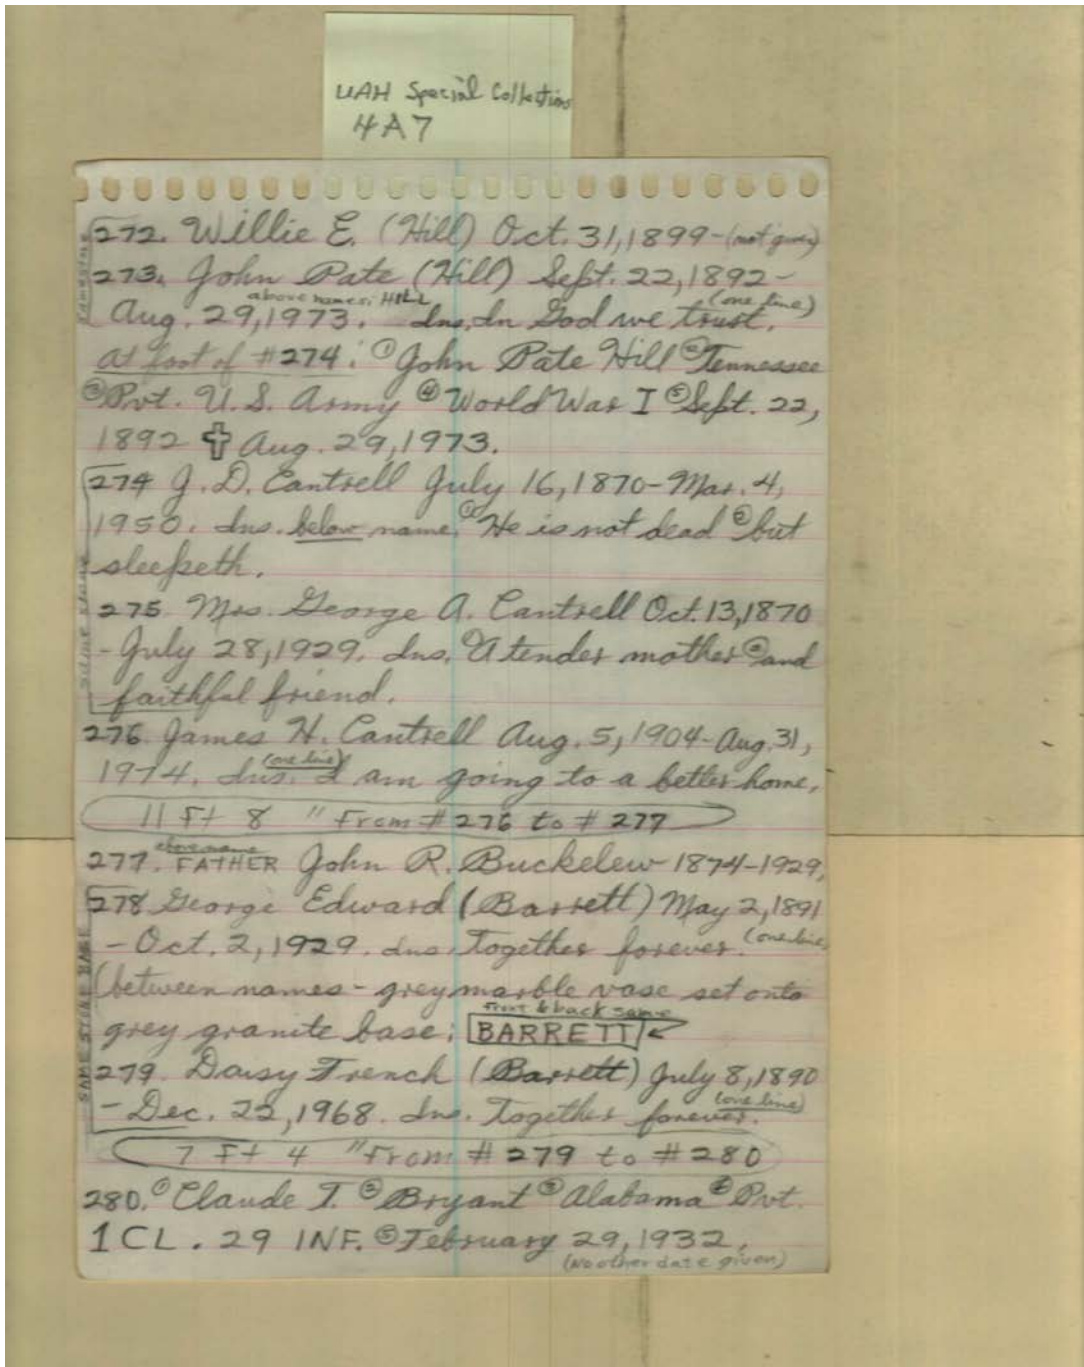 UAH Special Collections
4A7
272. Willie E. (Hill) Oct. 31, 1899-(not given)
273. John Pate (Hill) Sept. 22, 1892-
above names: HILL
(one line)
Aug. 29, 1973. Ins. In God we trust.
at foot of #274: ① John Pate Hill ② Tennessee
③ Pvt. U.S. Army ④ World War I ⑤ Sept. 22,
1892 ✞ Aug. 29, 1973.
274 J. D. Cantrell July 16, 1870-Mar. 4,
1950. Ins. below name: ① He is not dead ② but
sleepeth.
275 Mrs. George A. Cantrell Oct. 13, 1870
- July 28, 1929. Ins. ① A tender mother ② and
faithful friend.
276. James H. Cantrell Aug. 5, 1904-Aug. 31,
(one line)
1974. Ins. I am going to a better home.
11 Ft 8 " From #276 to #277
above name
277. FATHER John R. Buckelew 1874-1929.
278 George Edward (Barrett) May 2, 1891
- Oct. 2, 1929. Ins. Together forever. (one line)
(between names - grey marble vase set onto
front & back same
grey granite base: BARRETT
279. Daisy French (Barrett) July 8, 1890
- Dec. 22, 1968. Ins. Together forever. (one line)
7 Ft 4 " From #279 to #280
280. ① Claude T. ② Bryant ③ Alabama ④ Pvt.
1 CL. 29 INF. ⑤ February 29, 1932.
(No other date given)
SAME STONE
SAME STONE BASE